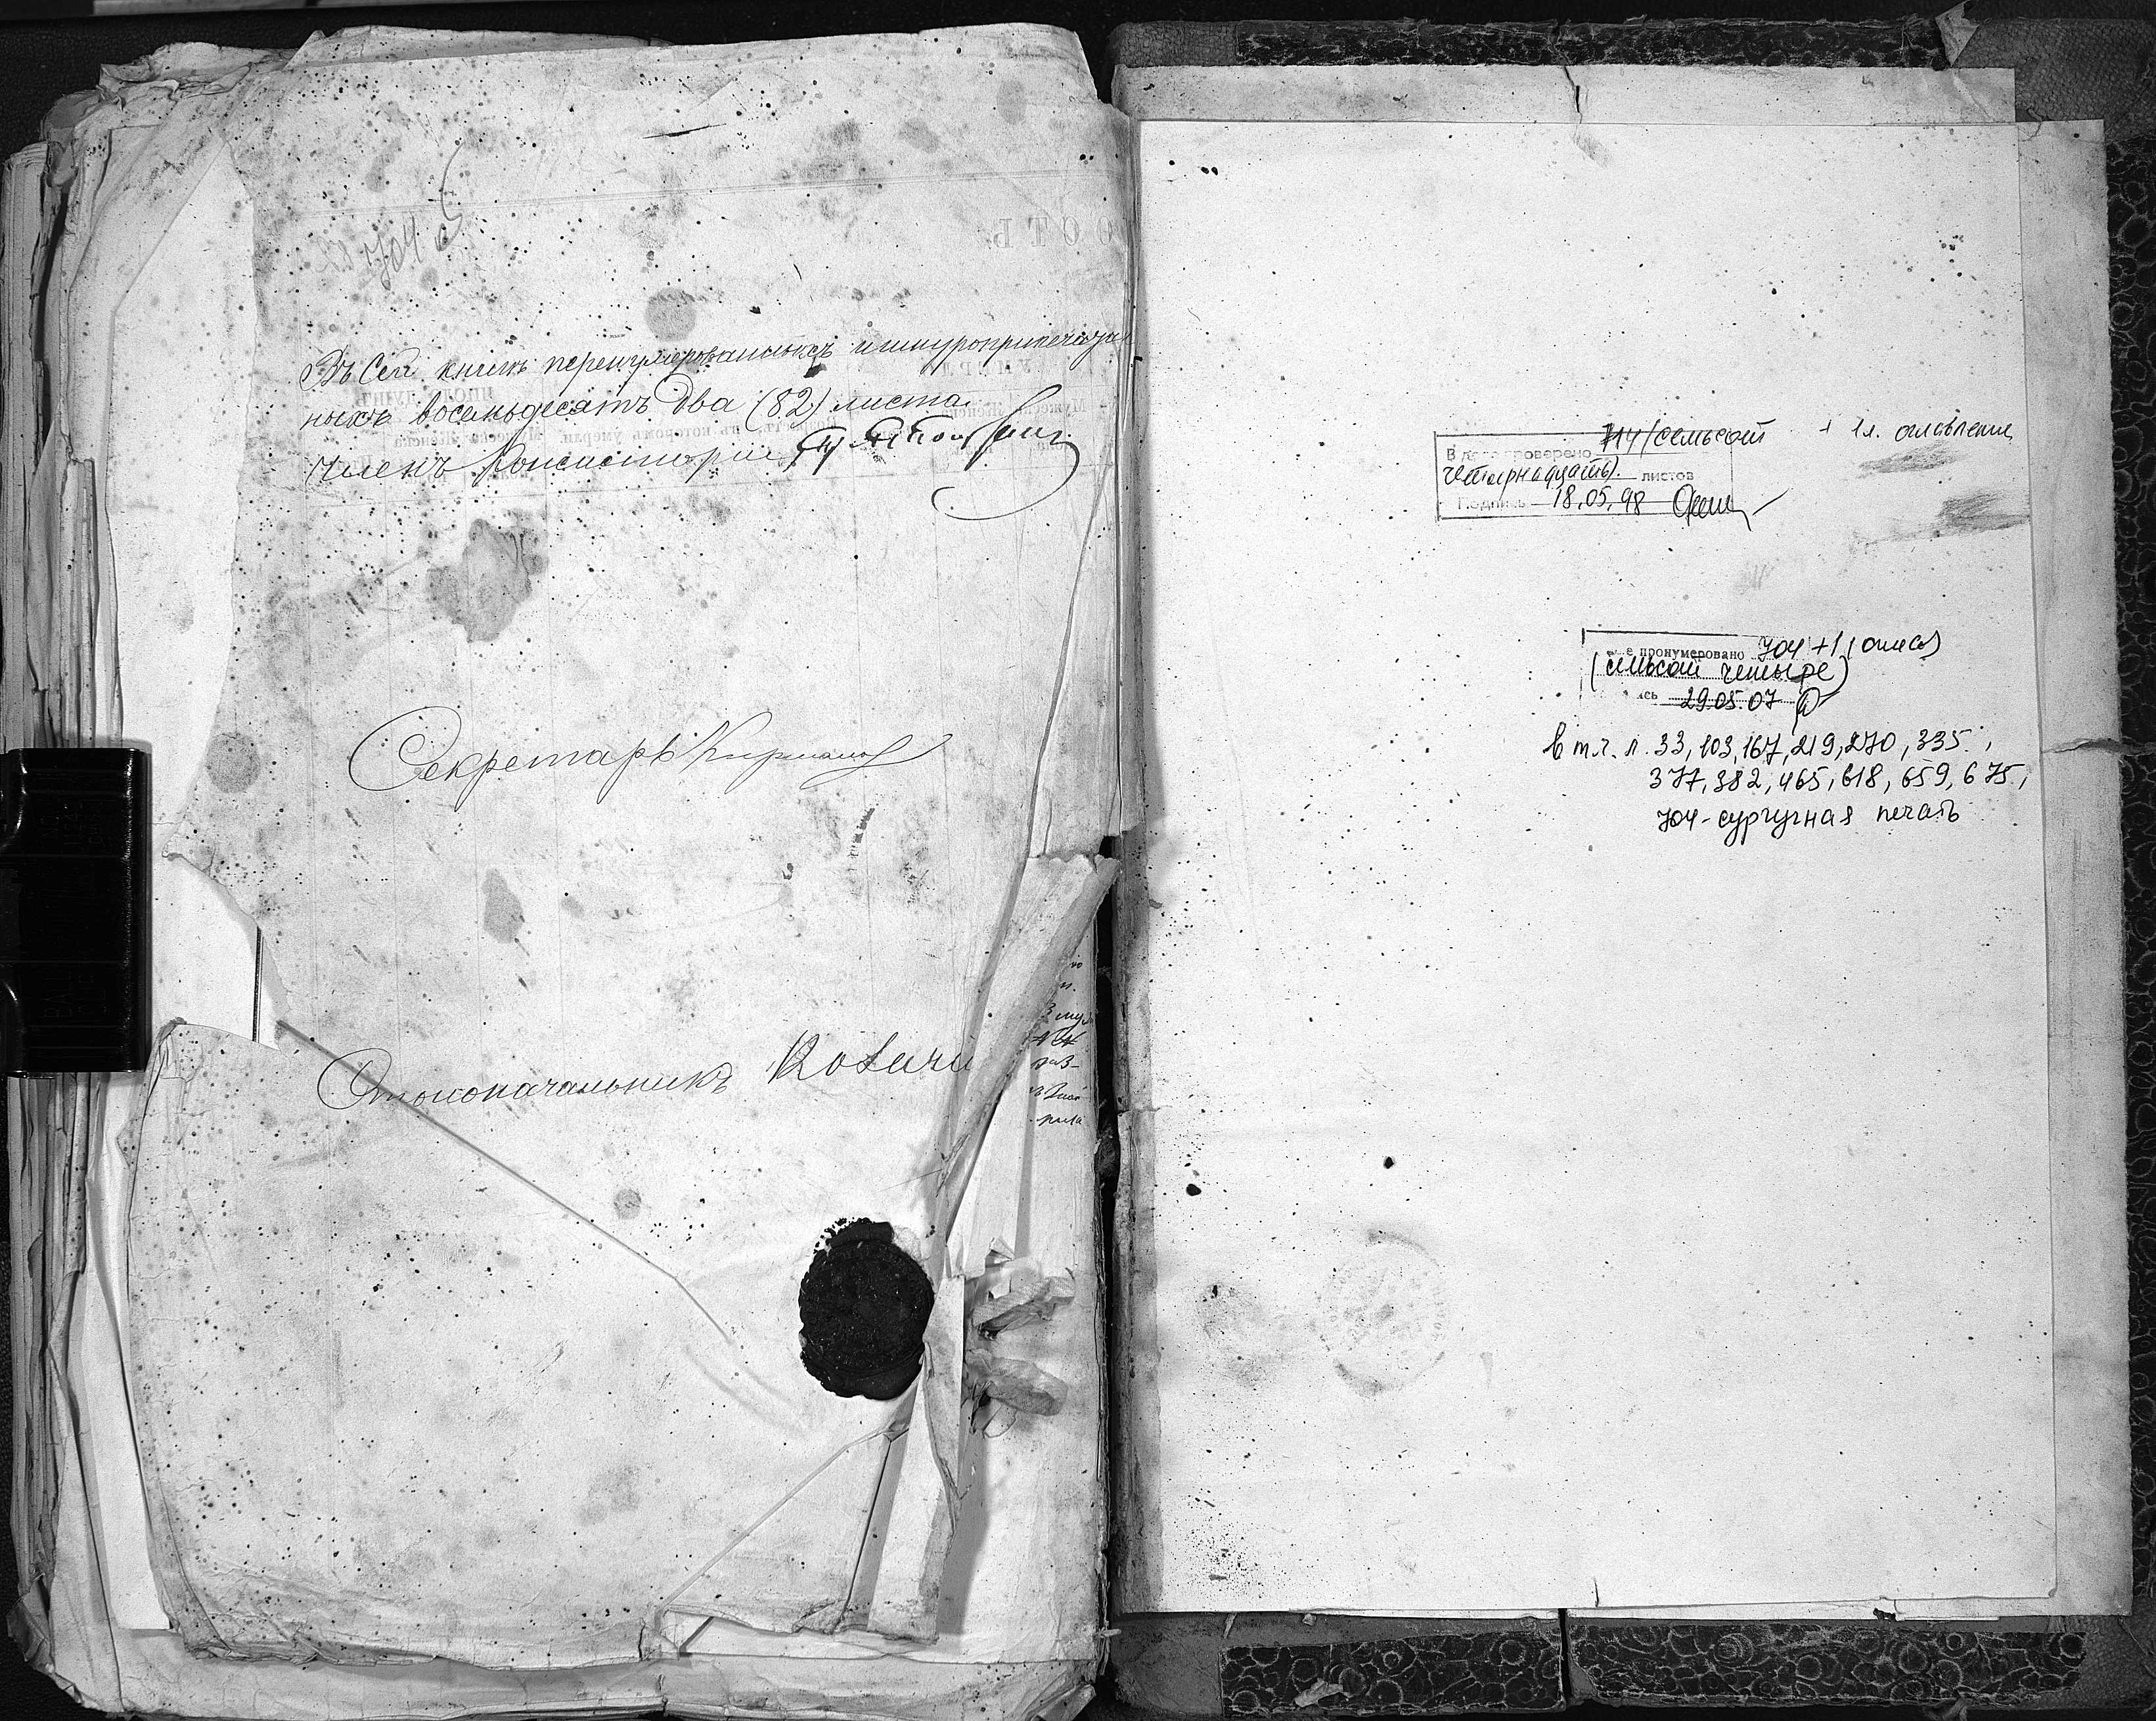 704
Въ сей книгѣ перенумерованныхъ и шнуроприпечатан
ныхъ восемьдесятъ два (82) листа.
Членъ Консисторіи
Секретарь
Столоначальникъ
714 (семьсот + 1л. оглавление
В деле проверено
четырнадцать) листов
Подпись 18.05.98
704 + 1 (
е пронумеровано
(семьсот четыре)
29.05.07
в т.ч. л. 33, 103, 167, 219, 270, 335,
377, 382, 465, 618, 659, 675,
704 - сургучная печать